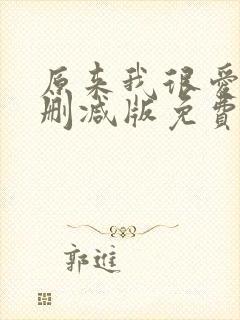 原来我很爱
删减版免費
郭進